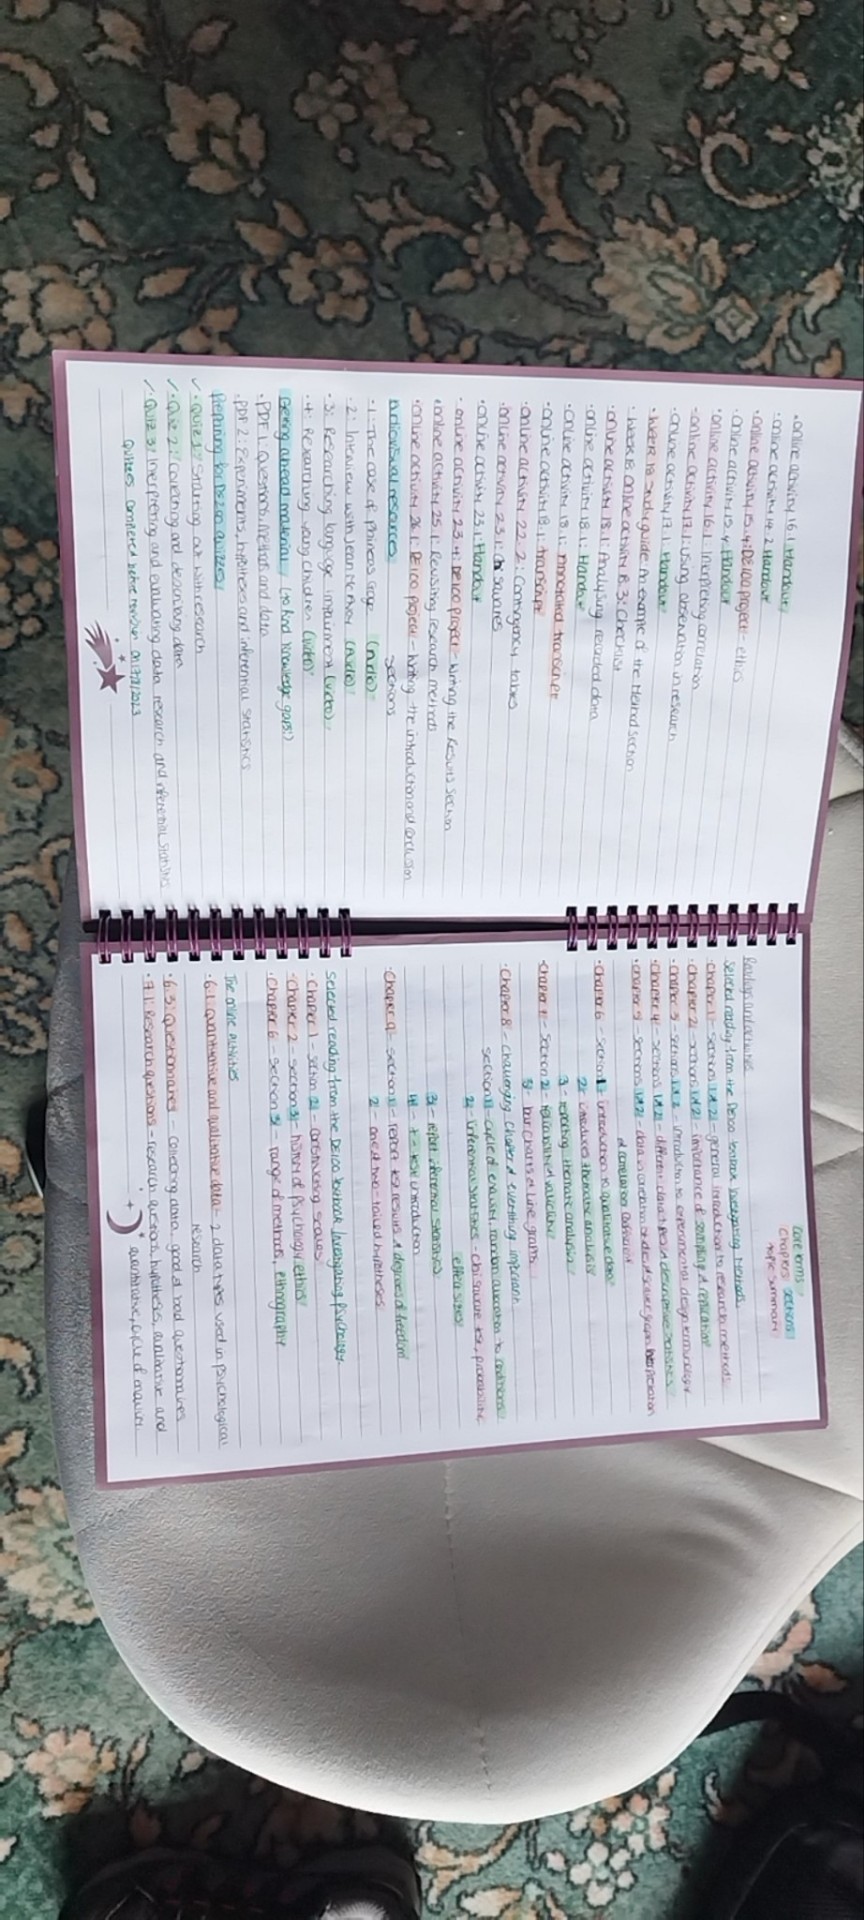 ·online activity 16.1 Handout
·online activity 14.2 Handout
·online activity 15.4: DE100 project - ethics
·online activity 15.4 Handout
·online activity 16.1 Interpreting correlation
·online activity 17.1: using observation in research
·online activity 17.1 Handout
·Week 18 Study guide: An example of the Method section
·Week 18 online activity 18.3: Checklist
·online activity 18.1: Analysing recorded data
·online activity 18.1: Handout
·online activity 18.1: annotated transcript
·online activity 18.1: transcript
·online activity 22.2: Contingency tables
·online activity 23.1: squares
·online activity 23.1: Handout
·online activity 23.4: DE100 project - writing the results section
·online activity 25.1: Revisiting research methods
·online activity 26.1: DE100 project - writing the introduction and conclusion
sections
Audiovisual resources
·1: The case of Phineas Gage (Audio)
·2: Interview with Jean (Audio)
·3: Researching language impairment (video)
·4: Researching young children (video)
Getting ahead material (to find knowledge gaps!)
·PDF 1: Questions, methods and data
·PDF 2: Experiments, hypotheses and inferential statistics
Preparing for quizzes
✓·Quiz 1: Starting out with research
✓·Quiz 2: Collecting and describing data
✓·Quiz 3: Interpreting and evaluating data, research and inferential statistics
Quizzes completed before revision on
core terms
Chapters sections
topic summary
Readings and activities
Selected reading from the DE100 textbook Investigating Methods
·Chapter 1 - sections 1 & 2 - general introduction to research methods
·Chapter 2 - sections 1 & 2 - importance of sampling & replication
·Chapter 3 - sections 1 & 2 - introduction to experimental design terminology
·Chapter 4 - sections 1 & 2 - different data types in descriptive statistics
·Chapter 5 - sections 1 & 2 - data in correlation studies, scatter graph interpretation
& correlation coefficient
·Chapter 6 - section 1 - introduction to qualitative data
2 - introduces thematic analysis
3 - reporting thematic analysis
·Chapter 7 - Section 2 - reliability & validity
3 - bar charts & line graphs
·Chapter 8 - challenging Chapter & everything important
section 1 - cycle of enquiry, random allocation to conditions
2 - inferential statistics - chi square test, probability,
effect sizes
3 - report inferential statistics
4 - t-test introduction
·Chapter 9 - section 1 - report test results & degrees of freedom
2 - one & two-tailed hypotheses
Selected reading from the DE100 textbook Investigating Psychology
·Chapter 1 - section 2 - constructing scales
·Chapter 2 - section 3 - history of psychology, ethics
·Chapter 6 - section 3 - range of methods, ethnography
The online activities
·6.1: Quantitative and qualitative data - 2 data types used in psychological
research
·6.3: Questionnaires - collecting data, good & bad questionnaires
·7.1: Research questions - research questions, hypotheses, qualitative and
quantitative, cycle of enquiry